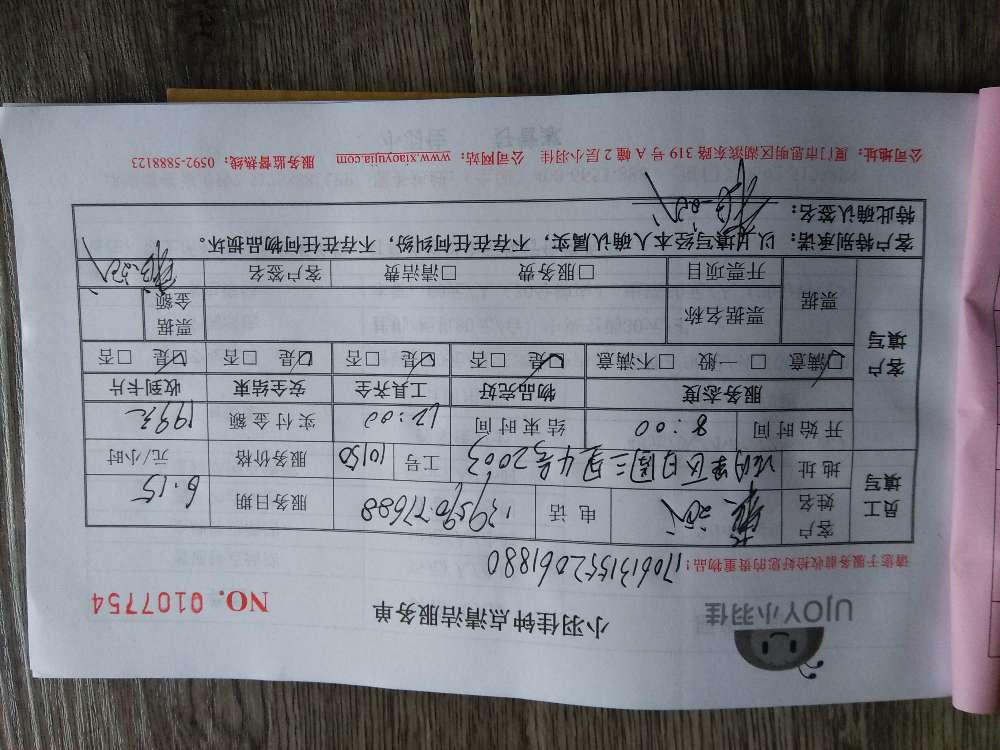 UJOY小羽佳
小羽佳钟点清洁服务单
NO. 0107754
请您于服务前收拾好您的贵重物品！
170613155206 1880
员工填写
客户姓名
电话
服务日期 6.15
地址
工号 10150
服务价格 元/小时
开始时间 8:00 结束时间 12:00 实付金额 199元
客户填写
服务态度 物品完好 工具齐全 安全结束 收到卡片
☑满意 □一般 □不满意 ☑是 □否 ☑是 □否 ☑是 □否 ☑是 □否
票据
票据名称
票据金额
开票项目 □服务费 □清洁费 客户签名
客户特别承诺：以上填写经本人确认属实，不存在任何纠纷，不存在任何物品损坏。
特此确认签名：
公司地址：厦门市思明区湖滨东路 319 号 A 幢 2 层小羽佳 公司网站：www.xiaoyujia.com 服务监督热线：0592-5888123